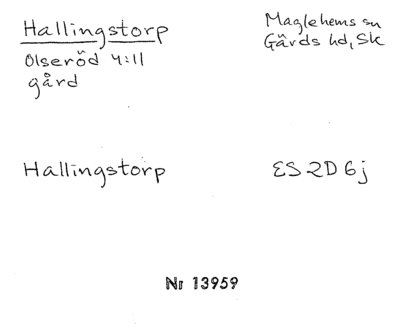 Hallingstorp
Olseröd 4:11
gård
Maglehems sn
Gärds hd, Sk
Hallingstorp
ES 2D 6j
Nr 13959